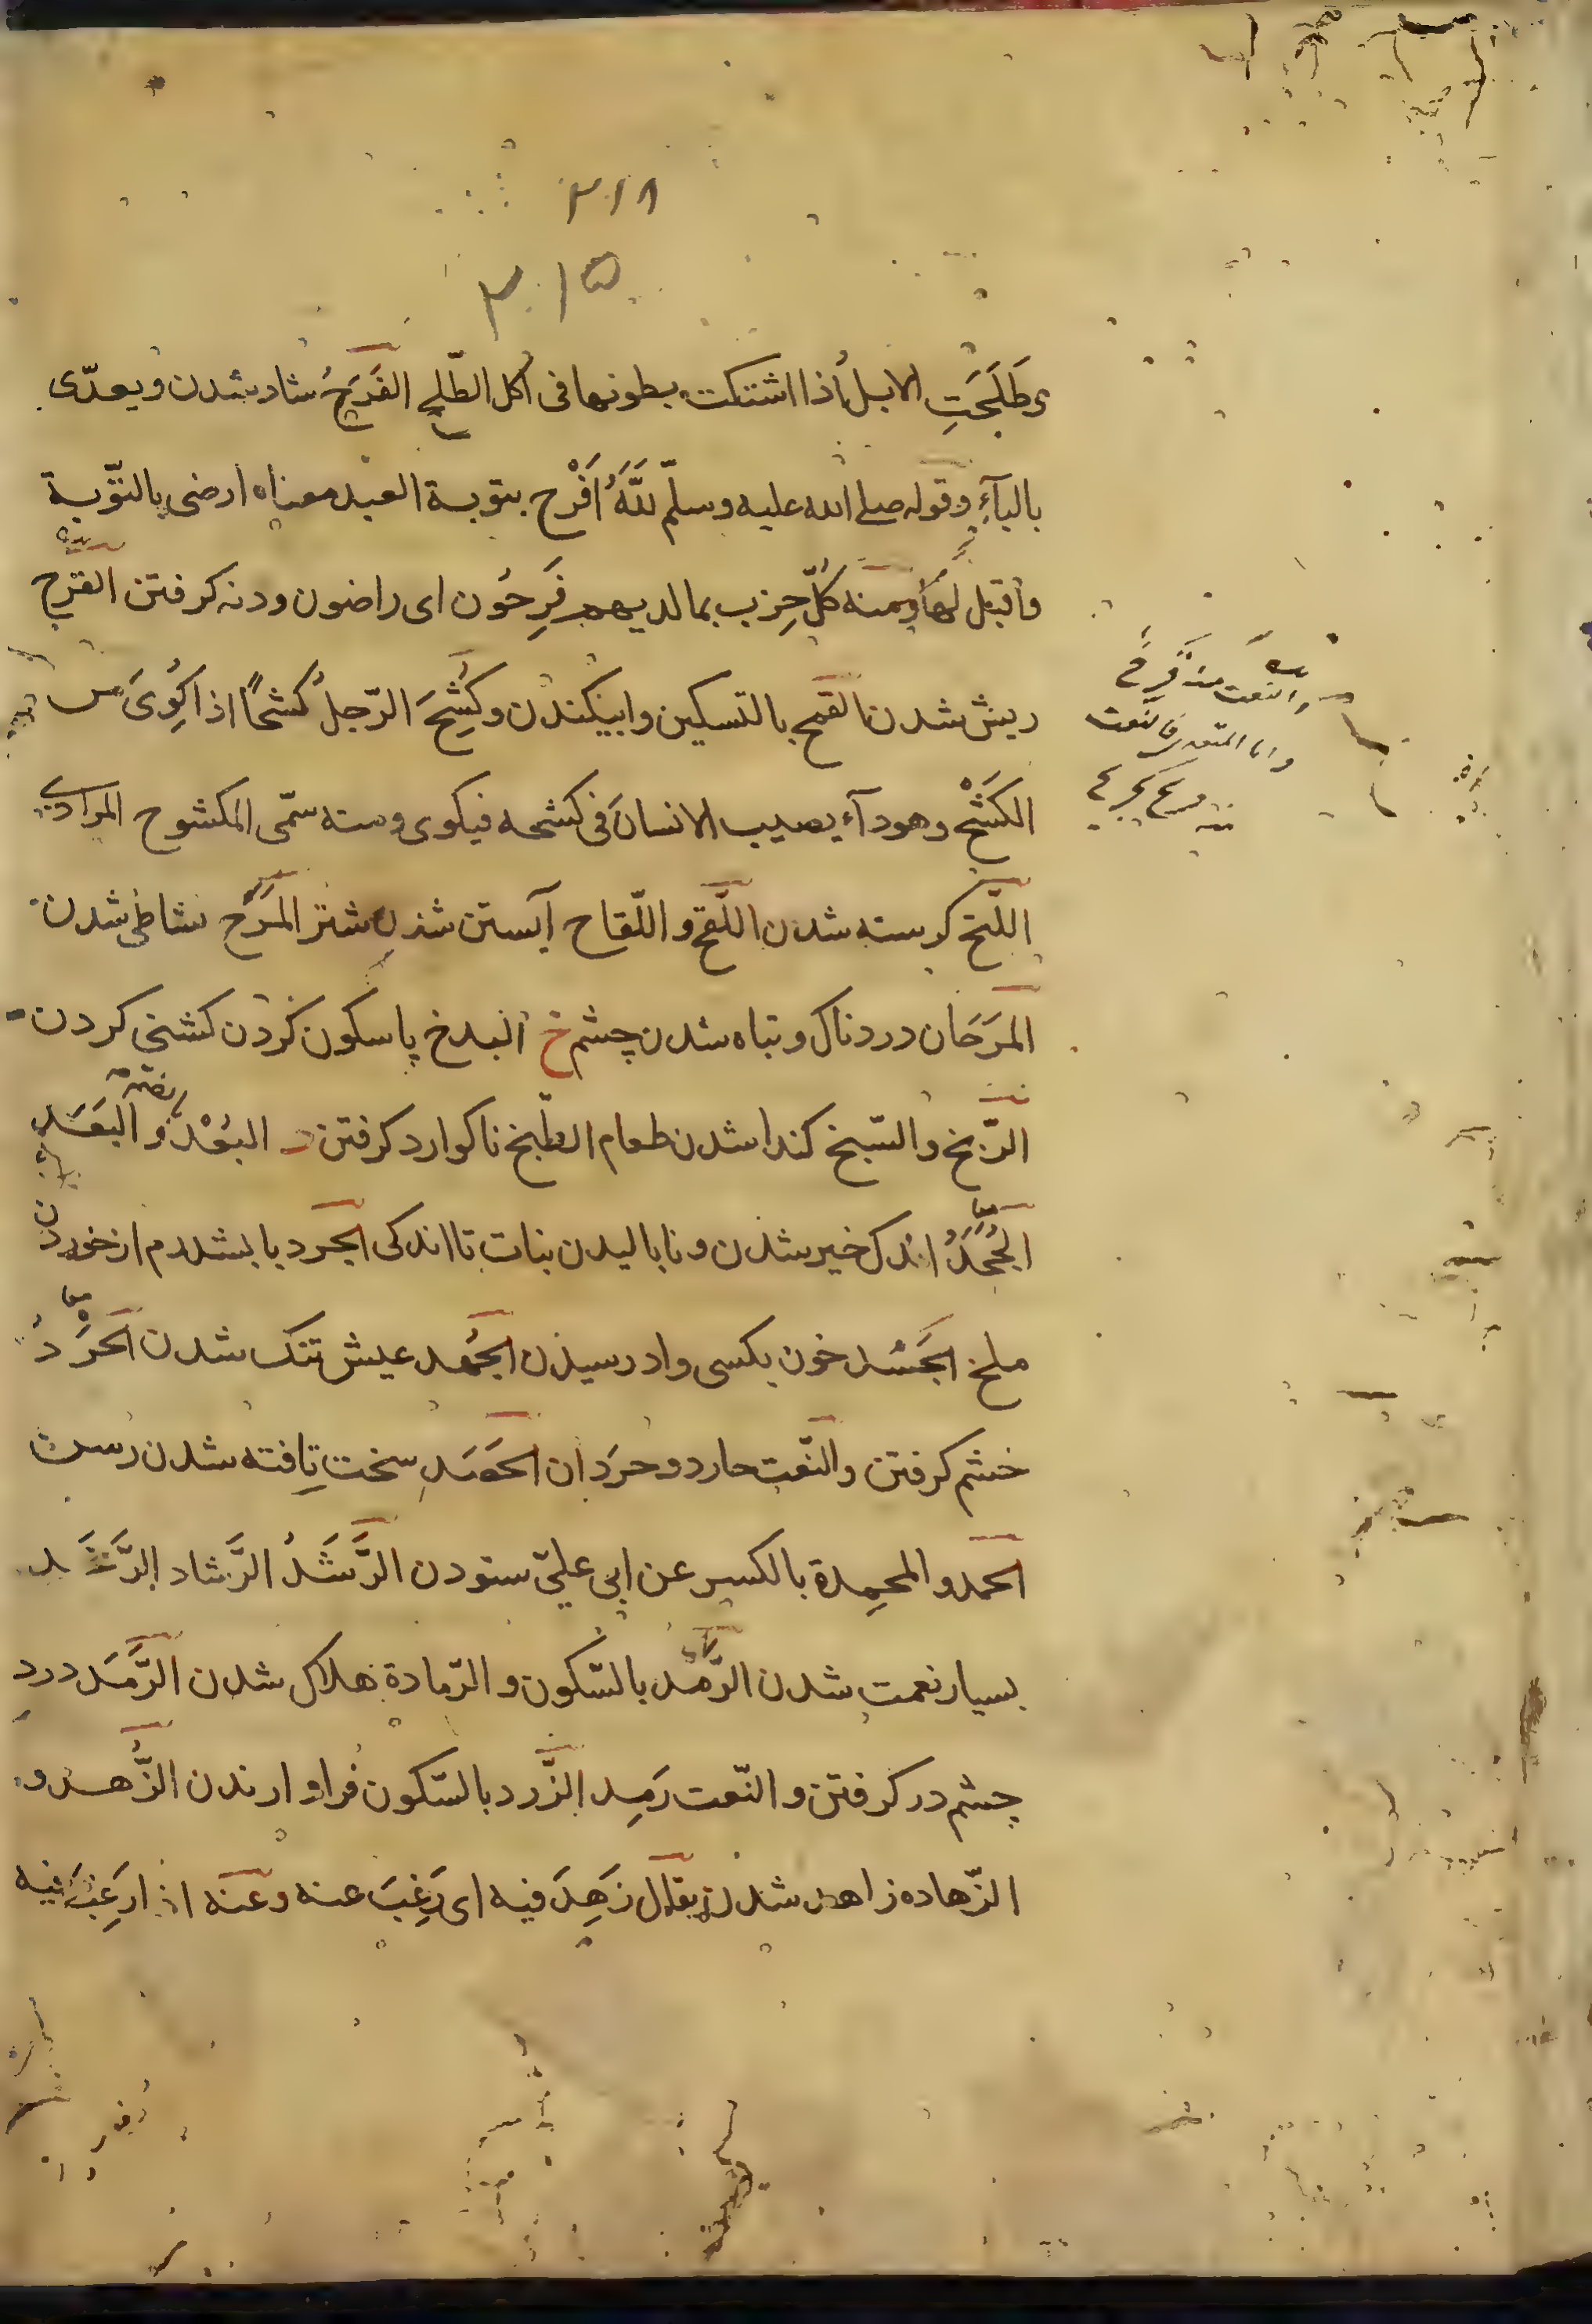 ۳۱۸
۳۱۵
و طَلَحَتِ الابلُ اذا اشتكت بطونها فى اكل الطّلح الفَرَحُ شاد شدن و يعدّى
بالبآءِ وقوله صلى الله عليه وسلّم لَلَّهُ اَفْرَح بتوبة العبد معناه ارضى بالتّوبة
واقبل لها ومنه كلّ حِزب بما لديهم فَرِحُون اى راضون و دنه كرفتن القرح
ريش شدن القمح بالتسكين وابيكندن وكُشِحَ الرّجلُ كشحًا اذا كُوِىَ من
الكَشْح وهو دآء يصيب الانسانَ فى كشحه فيكوى ومنه سمّى المكشوح المرادى
اللّتح كرسنه شدن اللّقح و اللّقاح آبستن شدن شتر المَرَح نشاطى شدن
المَرَحَان دردناك و تباه شدن چشم خ البدخ با سكون كردن كشنى كردن
الرّبخ والسّبخ كندا شدن طعام الطبخ ناكوارد كرفتن د البُعْد و البَعَد
الجُحْدُ اندك خير شدن و نا باليدن نبات تا اندكى الجرد با بشدرم از خوردن
ملخ الجَسَد خون بكسى وادرسيدن الجُهد عيش تنك شدن الحَرَدُ
خشم كرفتن والنّعت حارد و حَردَان الحَصَد سخت تافته شدن رسن
الحمد و المحمِدة بالكسر عن ابى علىّ ستودن الرَّشَدُ الرَّشاد الرَّغَد
بسيار نعمت شدن الرَّمْد بالسّكون و الرّمادة هلاك شدن الرَّمَد درد
چشم در كرفتن و النّعت رَمِد الزّرد بالسّكون فراواريدن الزُّهد و
الزّهاده زاهد شدن يقال زَهِدَ فيه اى رَغِبَ عنه وعنه اذا رَغِبَ فيه
والنعت منه قَرِح
واما المتعدى فالنعت
منه قريح كجريح